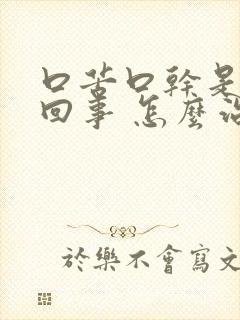 口苦口幹是
回事 怎麼治
於樂不會寫文